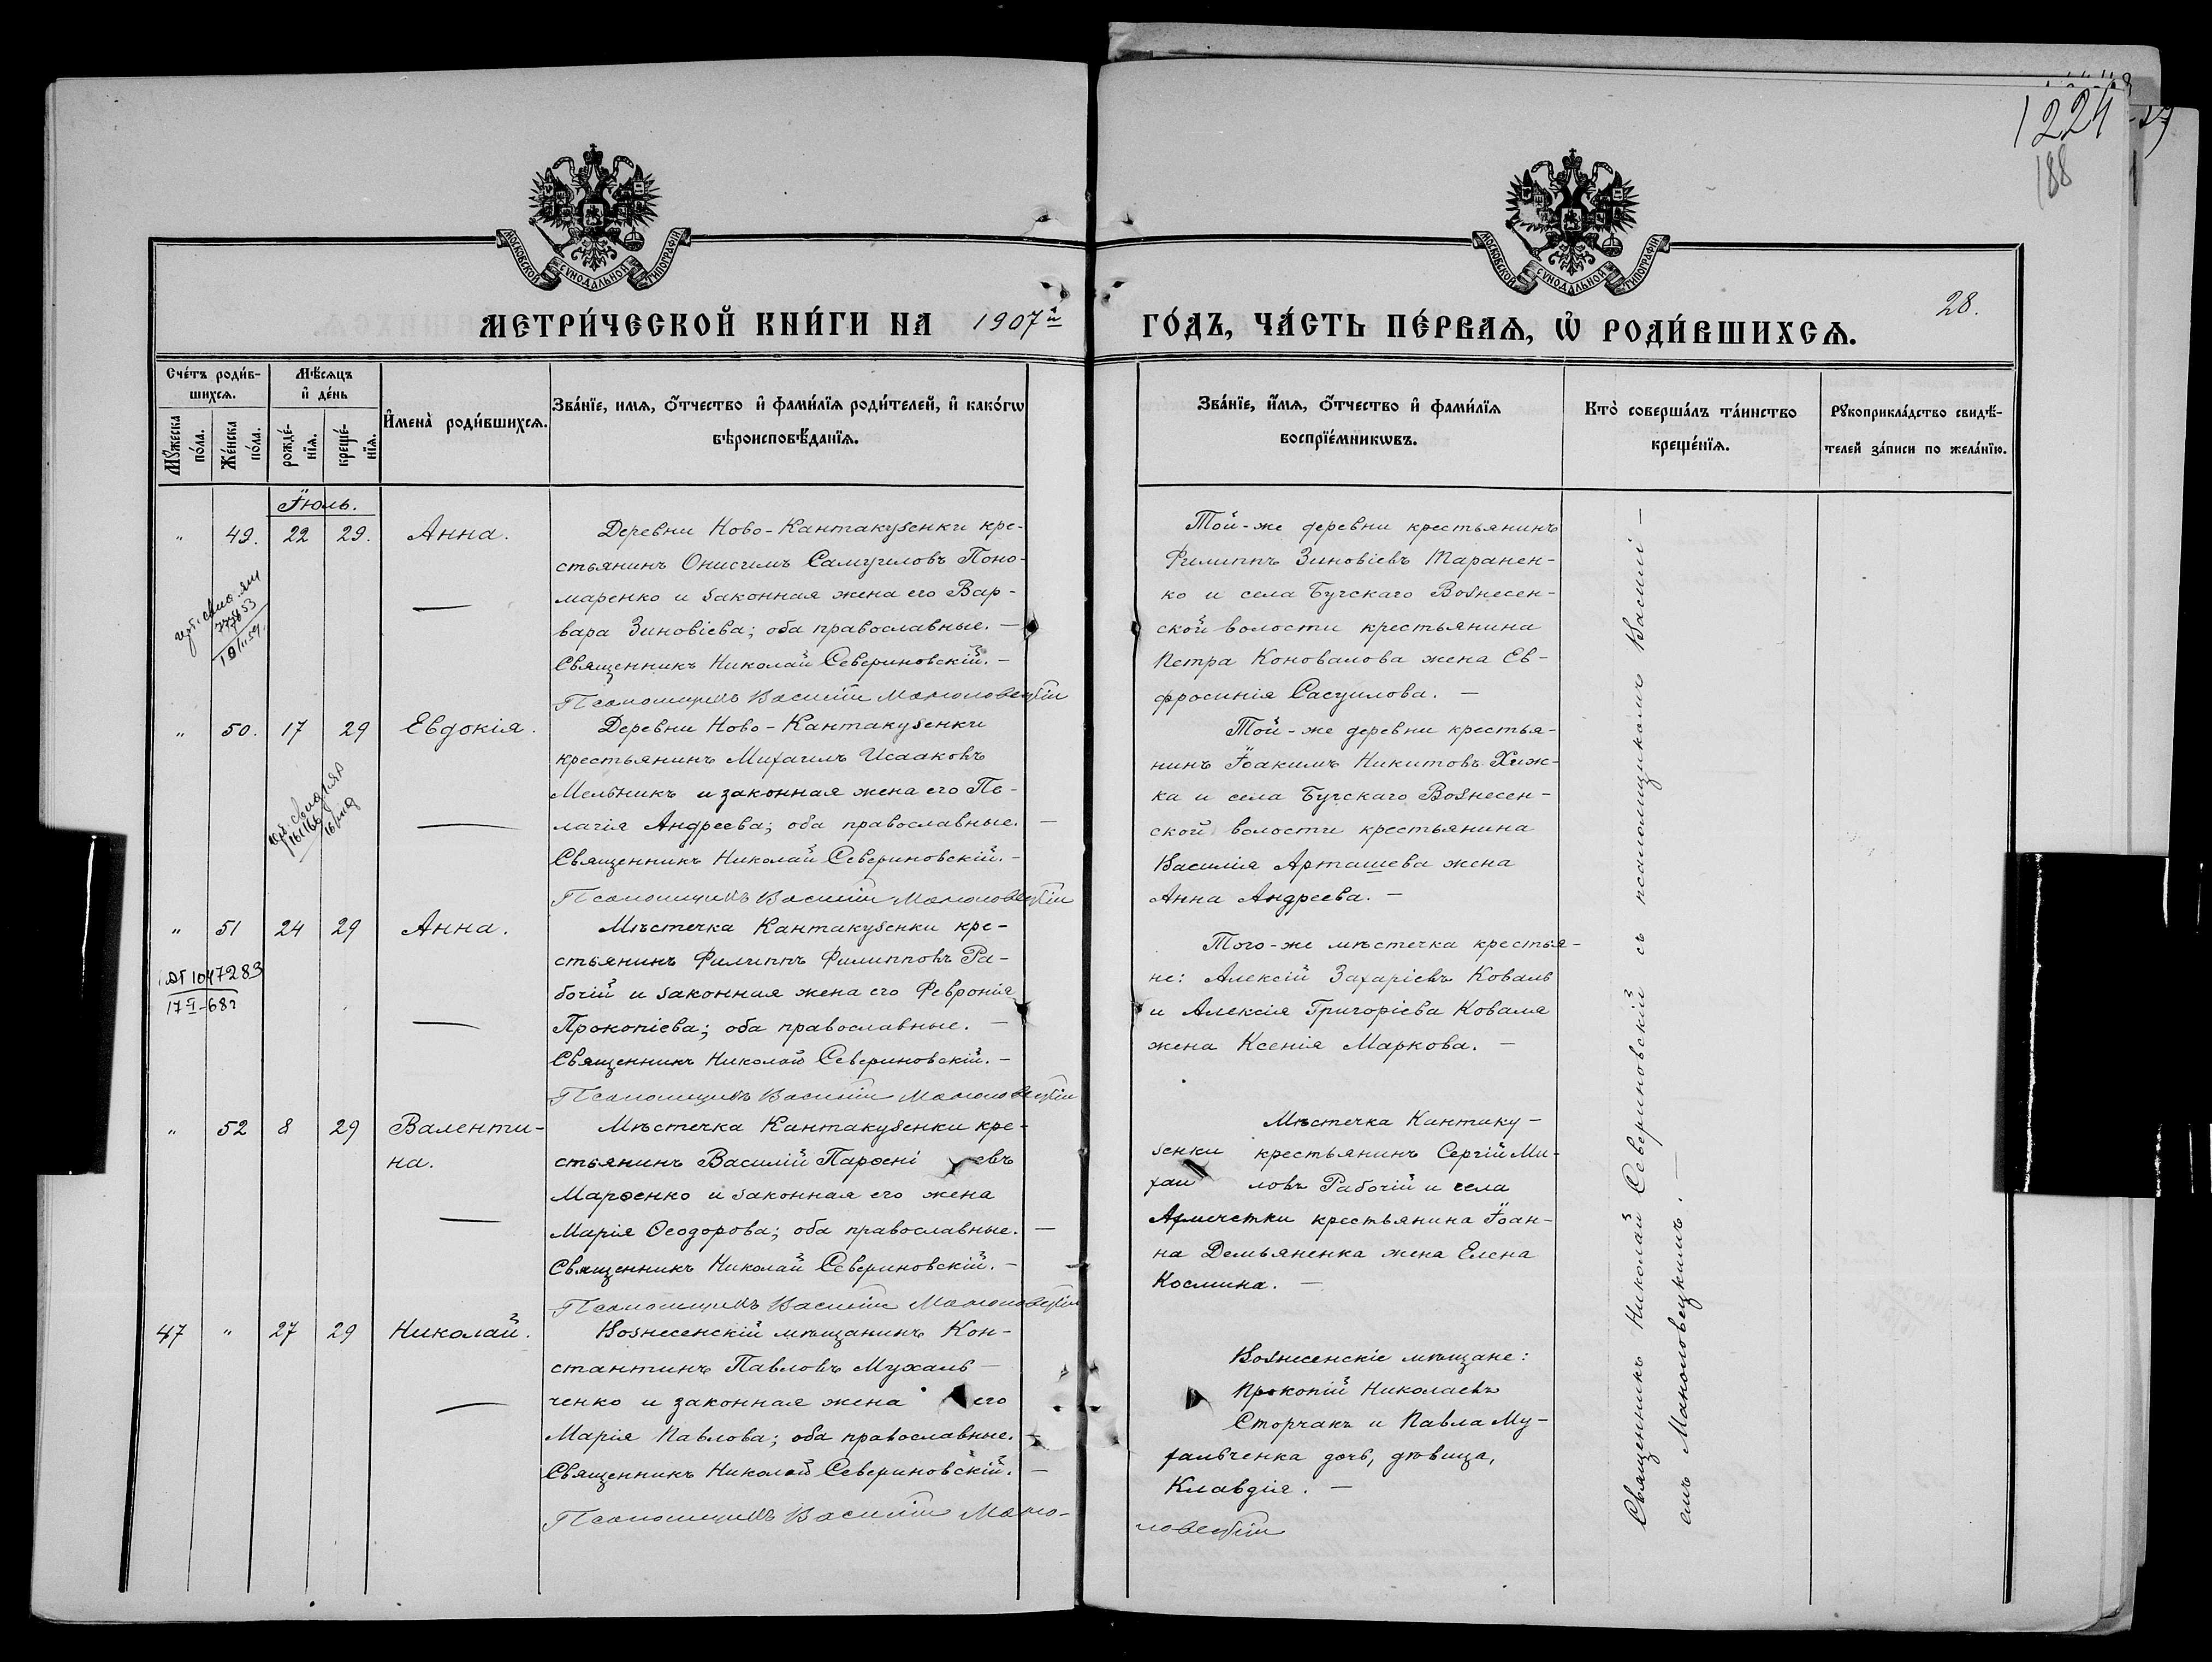 1224
188
МОСКОВСКОЙ СУНОДАЛЬНОЙ ТИПОГРАФІИ
МОСКОВСКОЙ СУНОДАЛЬНОЙ ТИПОГРАФІИ
28.
МЕТРИ́ЧЕСКОЙ КНИ́ГИ НА 1907й
ГО́ДЪ, ЧА́СТЬ ПЕ́РВАѦ, Ѡ҆ РОДИ́ВШИХСѦ.
Сче́тъ роди́в-
шихсѧ.
Мꙋ́жеска по́ла.
Же́нска по́ла.
Мѣ́сѧцъ
и҆ де́нь
рожде́-
нїѧ.
креще́-
нїѧ.
И҆мена̀ роди́вшихсѧ.
Зва́нїе, имѧ, ѻ҆́тчество и҆ фами́лїѧ роди́телей, и҆ како́гѡ
вѣроисповѣ́данїѧ.
Зва́нїе, и҆́мѧ, ѻ҆́тчество и҆ фами́лїѧ
воспрїе́мникѡвъ.
Кто̀ соверша́лъ та́инство
креще́нїѧ.
Рꙋкоприкла́дство свидѣ́-
телей за́писи по жела́нїю.
Іюль.
" 49. 22 29. Анна.
Деревни Ново-Кантакузенки кре-
стьянинъ Онисимъ Самуиловъ Поно-
маренко и законная жена его Вар-
вара Зиновіева; оба православные. —
Священникъ Николай Севериновскій. —
Псаломщикъ Василій Маноловецкій
Той-же деревни крестьянинъ
Филиппъ Зиновіевъ Таранен-
ко и села Бугскаго Вознесен-
ской волости крестьянина
Петра Коновалова жена Ев-
фросинія Сасуилова. —
" 50. 17 29 Евдокія.
Деревни Ново-Кантакузенки
крестьянинъ Михаилъ Исааковъ
Мельникъ и законная жена его Пе-
лагія Андреева; оба православные. —
Священникъ Николай Севериновскій. —
Псаломщикъ Василій Маноловецкій
Той-же деревни крестья-
нинъ Іоакимъ Никитовъ Хиж-
ка и села Бугскаго Вознесен-
ской волости крестьянина
Василія Арташева жена
Анна Андреева. —
" 51 24 29 Анна.
1047283
17 I-68г
Мѣстечка Кантакузенки кре-
стьянинъ Филиппъ Филипповъ Ра-
бочій и законная жена его Февронія
Прокопіева; оба православные. —
Священникъ Николай Севериновскій. —
Псаломщикъ Василій Маноловецкій
Того-же мѣстечка крестья-
не: Алексій Захаріевъ Коваль
и Алексія Григоріева Коваля
жена Ксенія Маркова. —
" 52 8 29 Валенти-
на.
Мѣстечка Кантакузенки кре-
стьянинъ Василій Парѳеніевъ
Марѳенко и законная его жена
Марія Ѳеодорова; оба православные. —
Священникъ Николай Севериновскій. —
Псаломщикъ Василій Маноловецкій
Мѣстечка Кантаку-
зенки крестьянинъ Сергій Ми-
хаиловъ Рабочій и села
Арнечетки крестьянина Іоан-
на Демьяненка жена Елена
Космина. —
47 " 27 29 Николай.
Вознесенскій мѣщанинъ Кон-
стантинъ Павловъ Мухаль-
ченко и законная жена его
Марія Павлова; оба православные. —
Священникъ Николай Севериновскій. —
Псаломщикъ Василій Мано-
ловецкій
Вознесенскіе мѣщане:
Прокопій Николаевъ
Сторчакъ и Павла Му-
хальченка дочь, дѣвица,
Клавдія. —
Священникъ Николай Севериновскій съ псаломщикомъ Василі-
емъ Маноловецкимъ. —